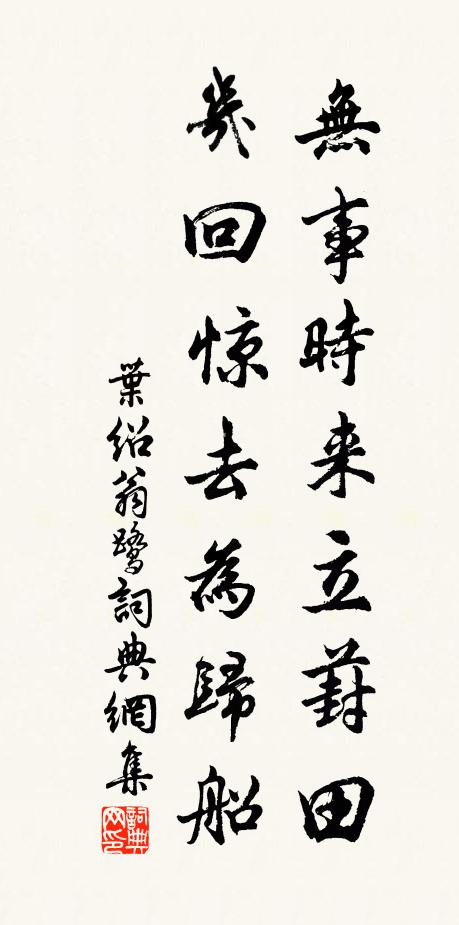 無事時来立葑田
幾回惊去為歸船
葉紹翁鷺詞典網集
詞典网印